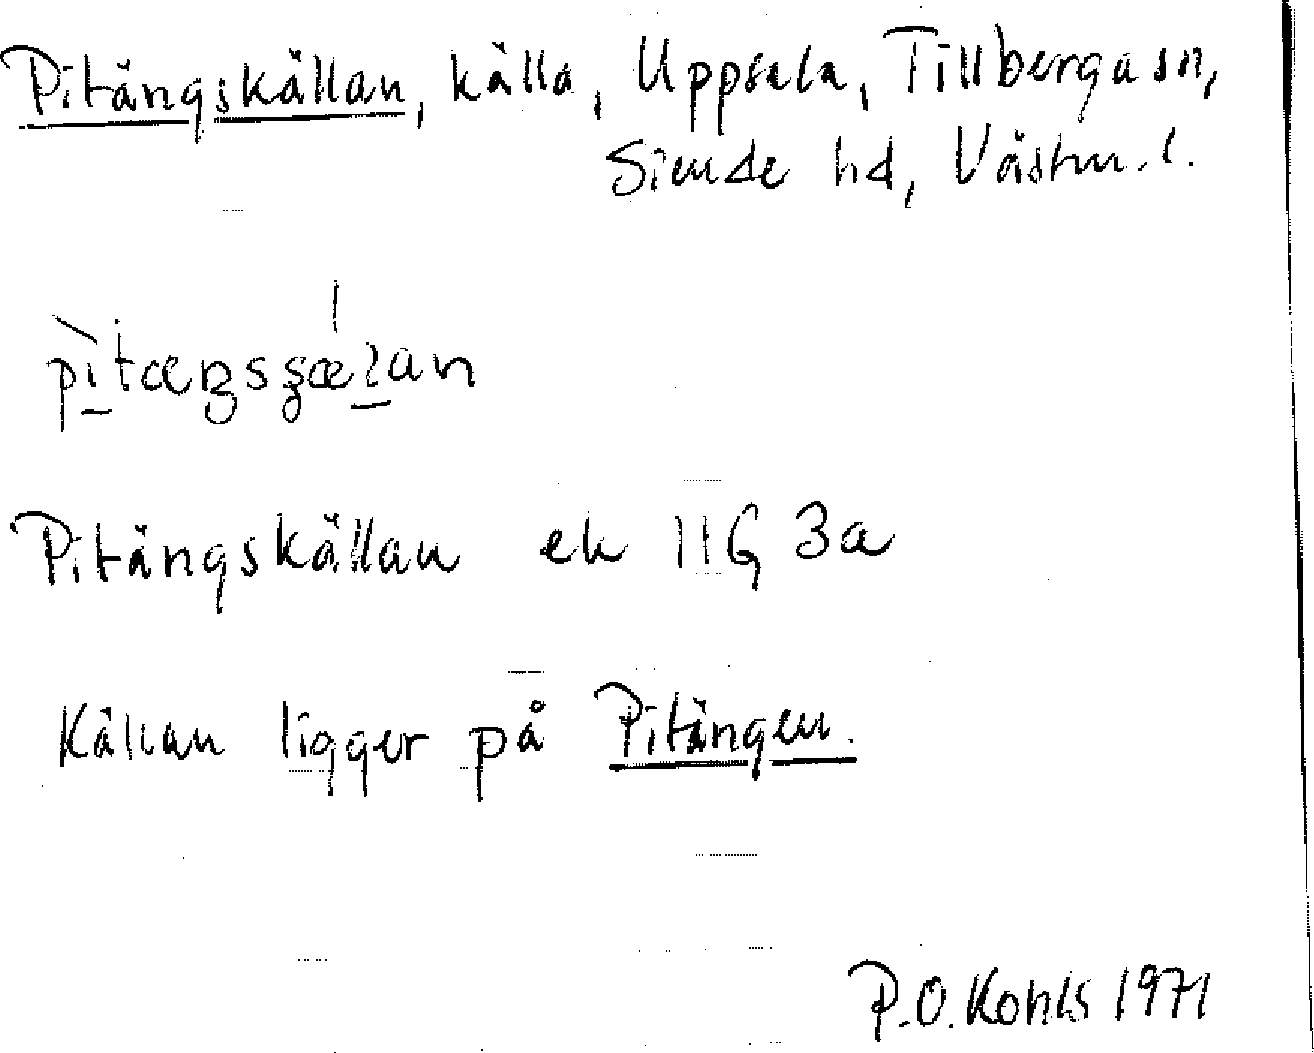 Pitängskällan, källa, Uppsala, Tillberga sn,
Siende hd, Västm. l.
Pitängskällan ek 11G 3a
Källan ligger på Pitängen.
P.O. Kohls 1971